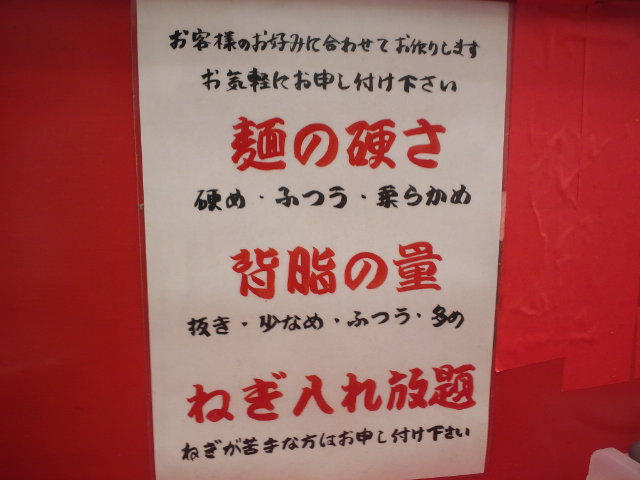 お客様のお好みに合わせてお作りします
お気軽にお申し付け下さい
麺の硬さ
硬め・ふつう・柔らかめ
背脂の量
抜き・少なめ・ふつう・多め
ねぎ入れ放題
ねぎが苦手な方はお申し付け下さい